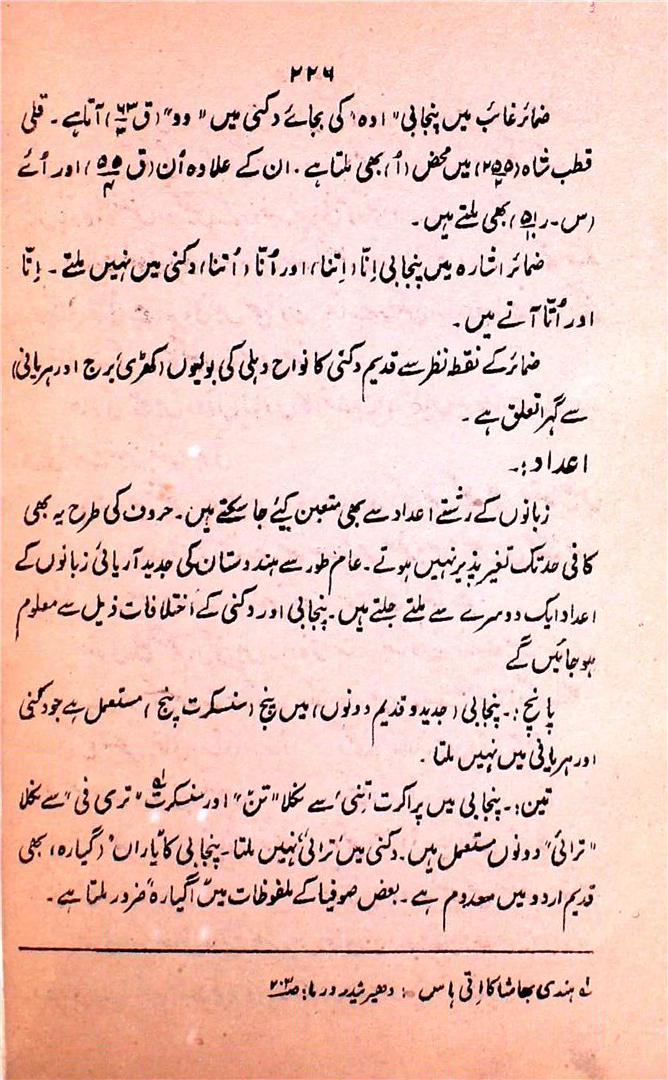 ۲۲۶
ضمائر غائب میں پنجابی "اوہ" کی بجائے دکنی میں "وو" (ق ۶۳/۳) آتا ہے۔ قلی
قطب شاہ (۲۵۵/۲) میں محض (اُ) بھی ملتا ہے۔ ان کے علاوہ اُن (ق ۵۵/۴) اور اُنے
(س۔ر ۵۱) بھی ملتے ہیں۔
ضمائر اشارہ میں پنجابی اِنّا (اِتنا) اور اُنّا (اُتنا) دکنی میں نہیں ملتے۔ اِتّا
اور اُتّا آتے ہیں۔
ضمائر کے نقطہ نظر سے قدیم دکنی کا نواح دہلی کی بولیوں (کھڑی، برج اور ہریانی)
سے گہرا تعلق ہے۔
اعداد :۔
زبانوں کے رشتے اعداد سے بھی متعین کیئے جا سکتے ہیں۔ حروف کی طرح یہ بھی
کافی حد تک تغیر پذیر نہیں ہوتے۔ عام طور سے ہندوستان کی جدید آریائی زبانوں کے
اعداد ایک دوسرے سے ملتے جلتے ہیں۔ پنجابی اور دکنی کے اختلافات ذیل سے معلوم
ہو جائیں گے
پانچ :۔ پنجابی (جدید و قدیم دونوں) میں پنج (سنسکرت پنچ) مستعمل ہے جو دکنی
اور ہریانی میں نہیں ملتا۔
تین :۔ پنجابی میں پراکرت "تِنی" سے نکلا "تنّ" اور سنسکرت "تری نی" لہ سے نکلا
"ترائی" دونوں مستعمل ہیں۔ دکنی میں 'ترائی' نہیں ملتا۔ پنجابی کا 'یاراں' (گیارہ) بھی
قدیم اردو میں معدوم ہے۔ بعض صوفیا کے ملفوظات میں "اگیارہ" ضرور ملتا ہے۔
لہ ہندی بھاشا کا اِتی ہاس : دھیریندر ورما، ص ۲۰۳